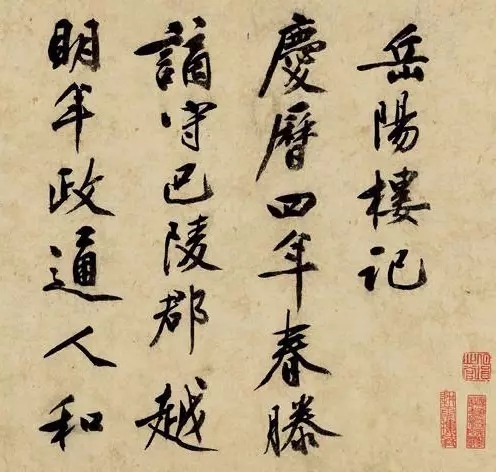 岳陽樓記
慶曆四年春滕
謫守巴陵郡越
明年政通人和